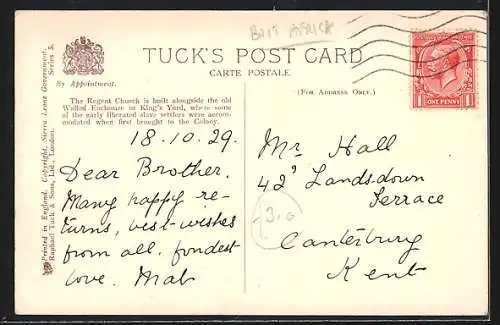 TUCK'S POST CARD
CARTE POSTALE.
By Appointment.
(For Address Only.)
The Regent Church is built alongside the old
Walled Enclosure or King's Yard, where some
of the early liberated slave settlers were accom-
modated when first brought to the Colony.
18.10.29.
Dear Brother.
Many happy re-
turns, best wishes
from all. fondest
love. Mab
Mr Hall
42 Landsdown
Terrace
Canterbury
Kent
ONE PENNY
1 1
Printed in England. Copyright, Sierra Leone Government.
Raphael Tuck & Sons, Ltd., London.
Series 5.